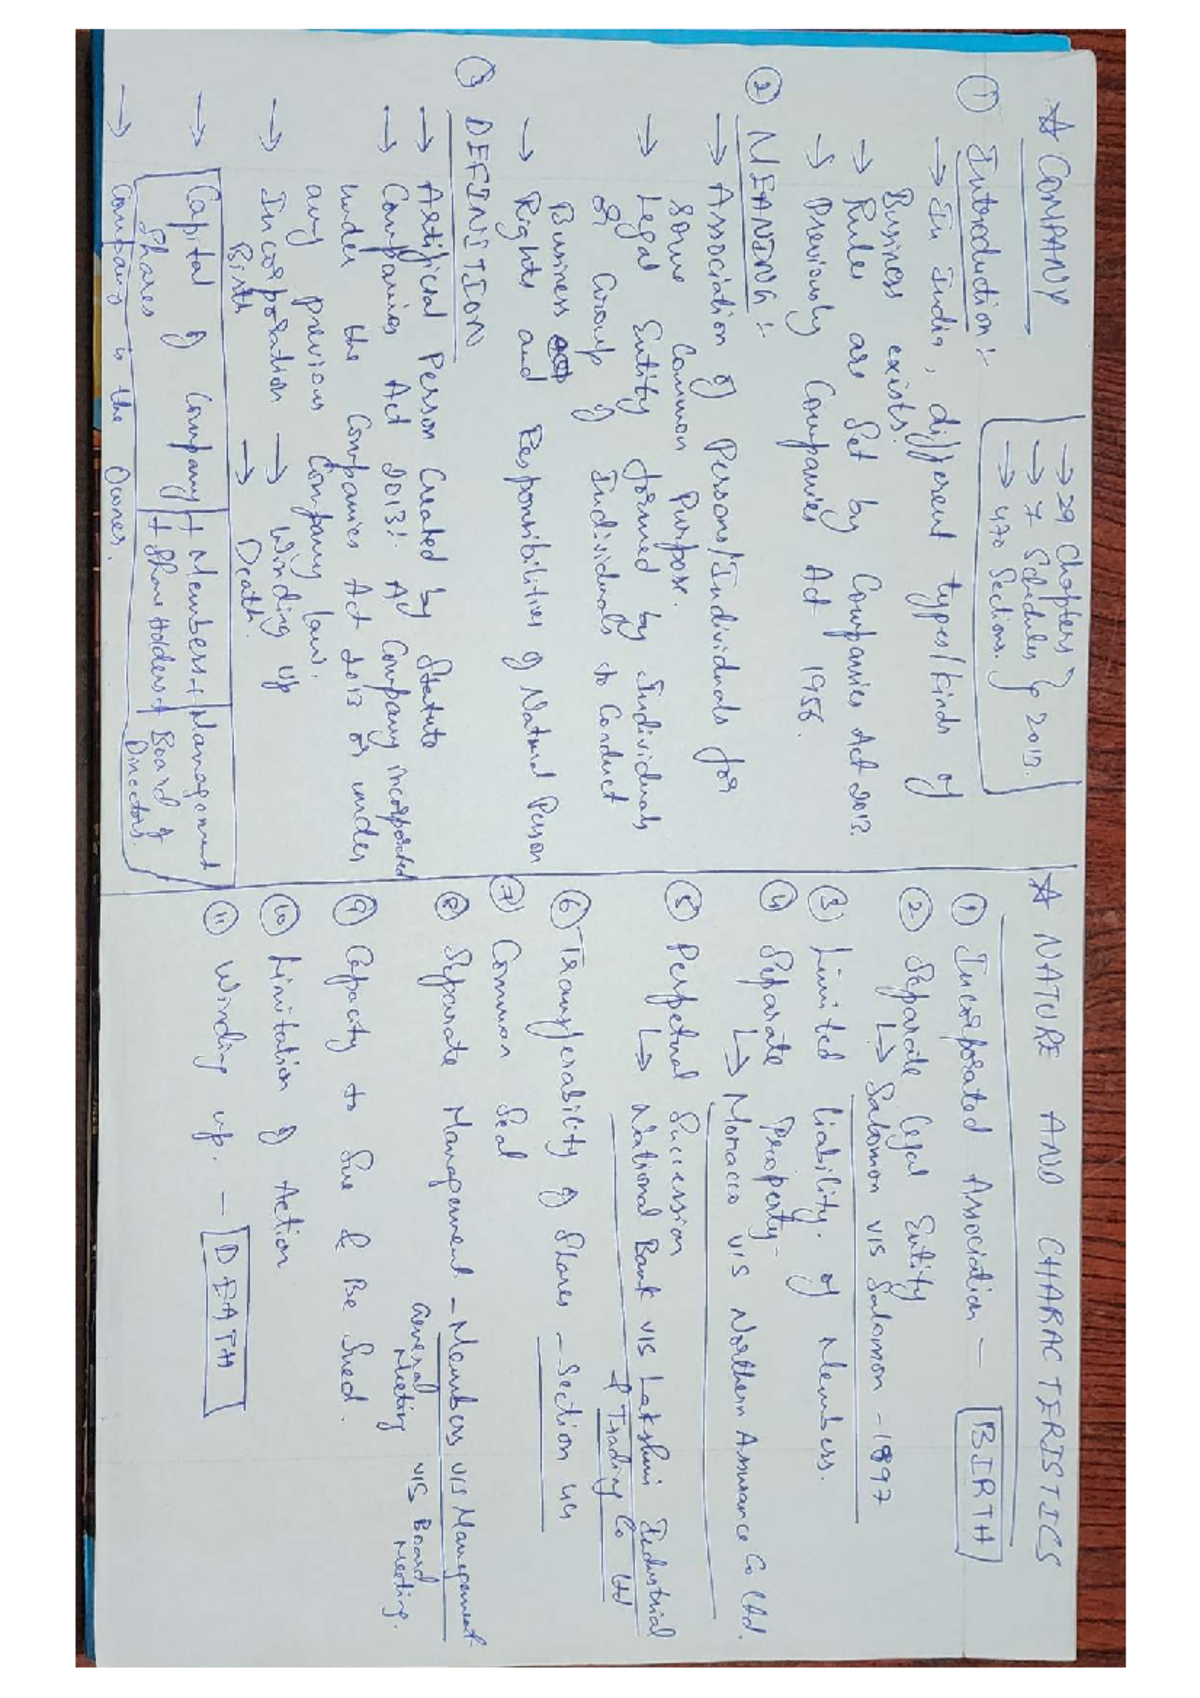 ☆ COMPANY
→ 29 Chapters
→ 7 Schedules } 2013.
→ 470 Sections.
① Introduction:-
→ In India, different types/kinds of
Business exists.
→ Rules are Set by Companies Act 2013.
→ Previously Companies Act 1956.
② MEANING:-
→ Association of Persons/Individuals for
Some Common Purpose.
→ Legal Entity formed by Individuals
or Group of Individuals to Conduct
Business
→ Rights and Responsibilities of Natural Person
③ DEFINITION
→ Artifical Person Created by Statute
→ Companies Act 2013:- A Company incorporated
under the Companies Act 2013 or under
any previous Company law.
→ Incorporation → Winding up
Birth → Death.
→ Capital of Company + Members + Management
Shares + Share Holders + Board of
Directors.
→ Company is the Owner.
☆ NATURE AND CHARACTERISTICS
① Incorporated Association — BIRTH
② Separate Legal Entity
↳ Salomon v/s Salomon - 1897
③ Limited liability of Members.
④ Separate Property-
↳ Moracco v/s Northern Assurance Co Ltd.
⑤ Perpetual Succession
↳ National Bank v/s Lakshmi Industrial
& Trading Co Ltd
⑥ Transferability of Shares - Section 44
⑦ Common Seal
⑧ Separate Management - Members v/s Management
General Meeting v/s Board Meeting.
⑨ Capacity to Sue & Be Sued.
⑩ Limitation of Action
⑪ Winding up. - DEATH